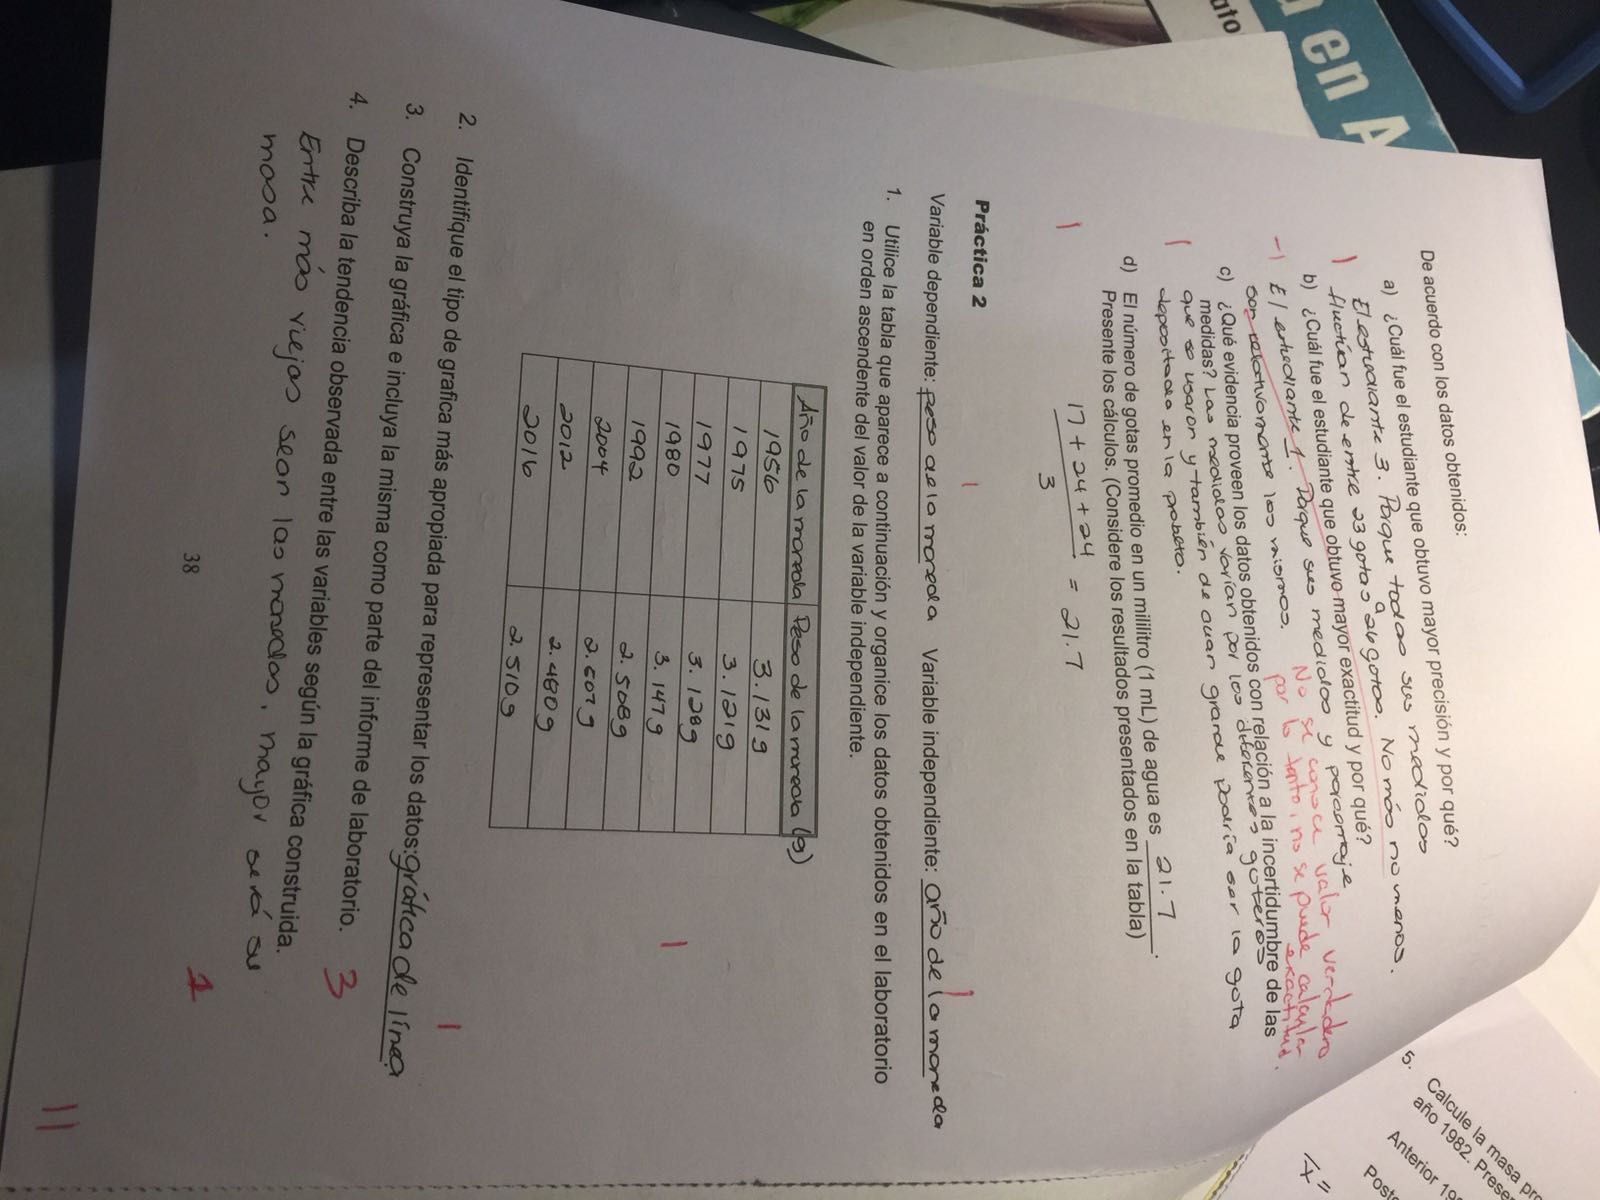 en A
ato
De acuerdo con los datos obtenidos:
a) ¿Cuál fue el estudiante que obtuvo mayor precisión y por qué?
1 El estudiante 3. Porque todas sus medidas
fluctúan de entre 23 gotas a 26 gotas. No más no menos.
b) ¿Cuál fue el estudiante que obtuvo mayor exactitud y por qué?
-1 El estudiante 1. Porque sus medidas y porcentaje
son relativamente los mismos.
No se conoce valor verdadero
por lo tanto, no se puede calcular
exactitud.
c) ¿Qué evidencia proveen los datos obtenidos con relación a la incertidumbre de las
medidas? Las medidas varían por los diferentes goteros
1 que se usaron y también de cuan grande podría ser la gota
depositada en la probeta.
d) El número de gotas promedio en un mililitro (1 mL) de agua es 21.7.
Presente los cálculos. (Considere los resultados presentados en la tabla)
1 17 + 24 + 24 = 21.7
3
Práctica 2
1 1
Variable dependiente: peso de la moneda Variable independiente: año de la moneda
1. Utilice la tabla que aparece a continuación y organice los datos obtenidos en el laboratorio
en orden ascendente del valor de la variable independiente.
Año de la moneda Peso de la moneda (g)
1956 3.131g
1975 3.121g
1977 3.128g
1980 3.147g
1992 2.508g
2004 2.607g
2012 2.480g
2016 2.510g
1
2. Identifique el tipo de grafica más apropiada para representar los datos: gráfica de línea
1
3. Construya la gráfica e incluya la misma como parte del informe de laboratorio. 3
4. Describa la tendencia observada entre las variables según la gráfica construida.
Entre más viejas sean las monedas, mayor será su
masa.
1
38
11
5. Calcule la masa pro
año 1982. Prese
Anterior 19
Poste
x̄ =